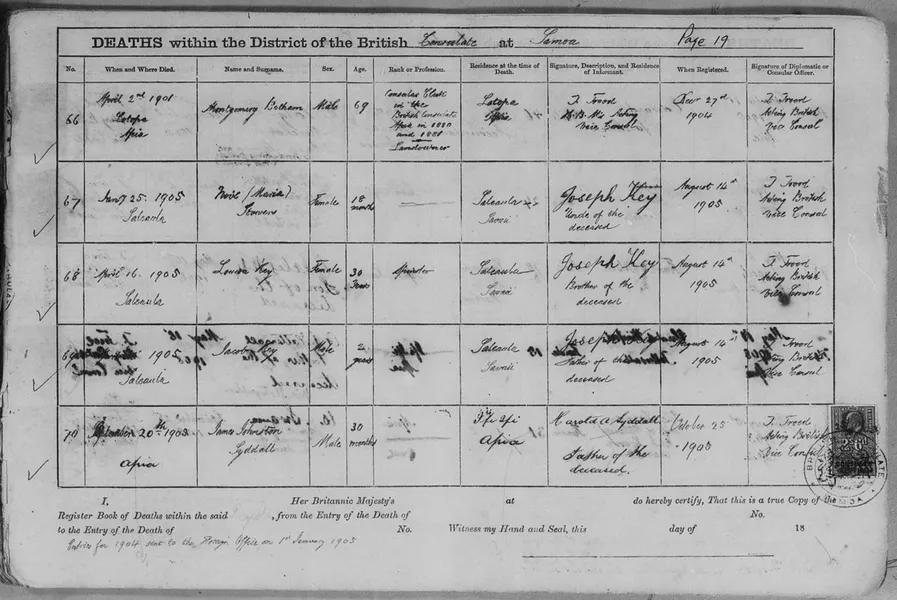 DEATHS within the District of the British Consulate at Samoa Page 19
No. When and Where Died. Name and Surname. Sex. Age. Rank or Profession. Residence at the time of Death. Signature, Description, and Residence of Informant. When Registered. Signature of Diplomatic or Consular Officer.
66
April 2nd 1901
Lotopa
Apia
Montgomery Betham
Male
69
Consular Clerk
in the
British Consulate
Apia in 1880
and 1881
Landowner
Lotopa
Apia
T Trood
H.B.M's Acting
Vice Consul
Decr 27th
1904
T Trood
Acting British
Vice Consul
67
Jany 25. 1905
Saleaula
(Maria)
Stowers
Female
18
months
Saleaula
Savaii
Joseph Key
Uncle of the
deceased
August 14th
1905
T Trood
Acting British
Vice Consul
68
April 16. 1905
Saleaula
Louisa Key
Female
30
years
Spinster
Saleaula
Savaii
Joseph Key
Brother of the
deceased
August 14th
1905
T Trood
Acting British
Vice Consul
69
1905
Saleaula
Key
Male
2
years
Saleaula
Savaii
Joseph Key
Father of
deceased
August 14th
1905
T Trood
Acting British
Vice Consul
70
20th 1905
Apia
James Johnston
Syddall
Male
30
months
Apia
Harold A Syddall
Father of the
deceased.
October 25
1905
T Trood
Acting British
Vice Consul
I, Her Britannic Majesty's at do hereby certify, That this is a true Copy of the
Register Book of Deaths within the said , from the Entry of the Death of No.
to the Entry of the Death of No. Witness my Hand and Seal, this day of 18
Entries for 1904 sent to the Foreign Office on 1st January 1905